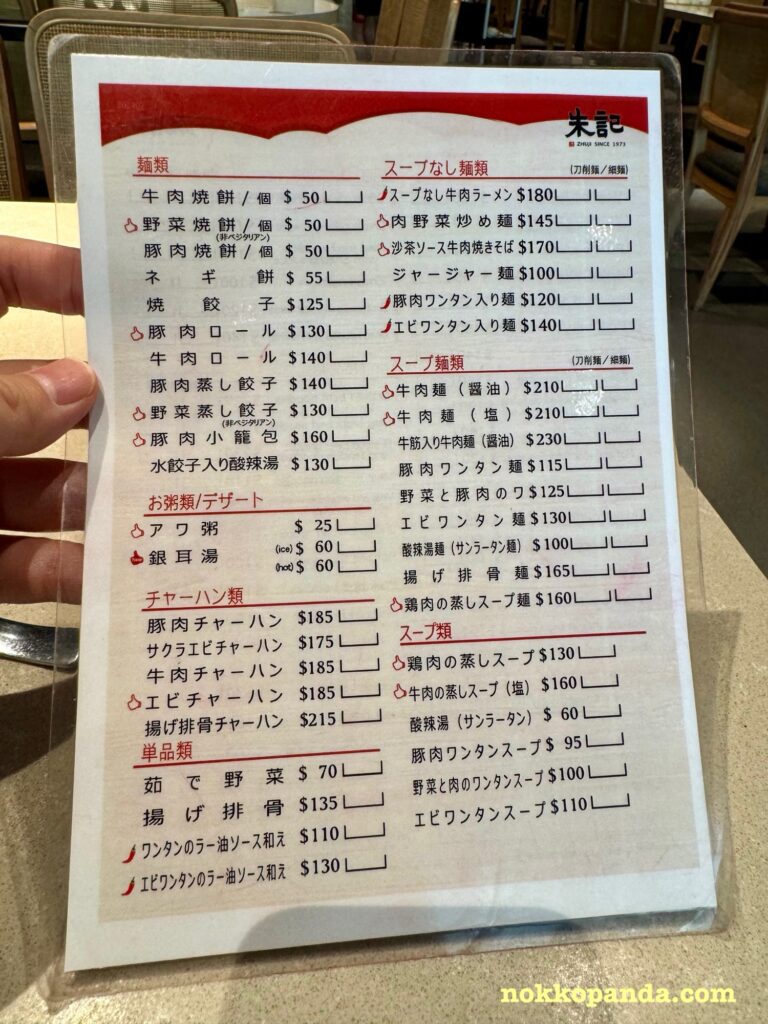 朱記
ZHUJI SINCE 1973
麺類
牛肉焼餅/個 $ 50
野菜焼餅/個 $ 50
(非ベジタリアン)
豚肉焼餅/個 $ 50
ネギ餅 $ 55
焼餃子 $125
豚肉ロール $130
牛肉ロール $140
豚肉蒸し餃子 $140
野菜蒸し餃子 $130
(非ベジタリアン)
豚肉小籠包 $160
水餃子入り酸辣湯 $130
お粥類/デザート
アワ粥 $ 25
銀耳湯 (ice) $ 60
(hot) $ 60
チャーハン類
豚肉チャーハン $185
サクラエビチャーハン $175
牛肉チャーハン $185
エビチャーハン $185
揚げ排骨チャーハン $215
単品類
茹で野菜 $ 70
揚げ排骨 $135
ワンタンのラー油ソース和え $110
エビワンタンのラー油ソース和え $130
スープなし麺類 (刀削麺/細麺)
スープなし牛肉ラーメン $180
肉野菜炒め麺 $145
沙茶ソース牛肉焼きそば $170
ジャージャー麺 $100
豚肉ワンタン入り麺 $120
エビワンタン入り麺 $140
スープ麺類 (刀削麺/細麺)
牛肉麺(醤油) $210
牛肉麺(塩) $210
牛筋入り牛肉麺(醤油) $230
豚肉ワンタン麺 $115
野菜と豚肉のワ $125
エビワンタン麺 $130
酸辣湯麺(サンラータン麺) $100
揚げ排骨麺 $165
鶏肉の蒸しスープ麺 $160
スープ類
鶏肉の蒸しスープ $130
牛肉の蒸しスープ(塩) $160
酸辣湯(サンラータン) $ 60
豚肉ワンタンスープ $ 95
野菜と肉のワンタンスープ $100
エビワンタンスープ $110
nokkopanda.com